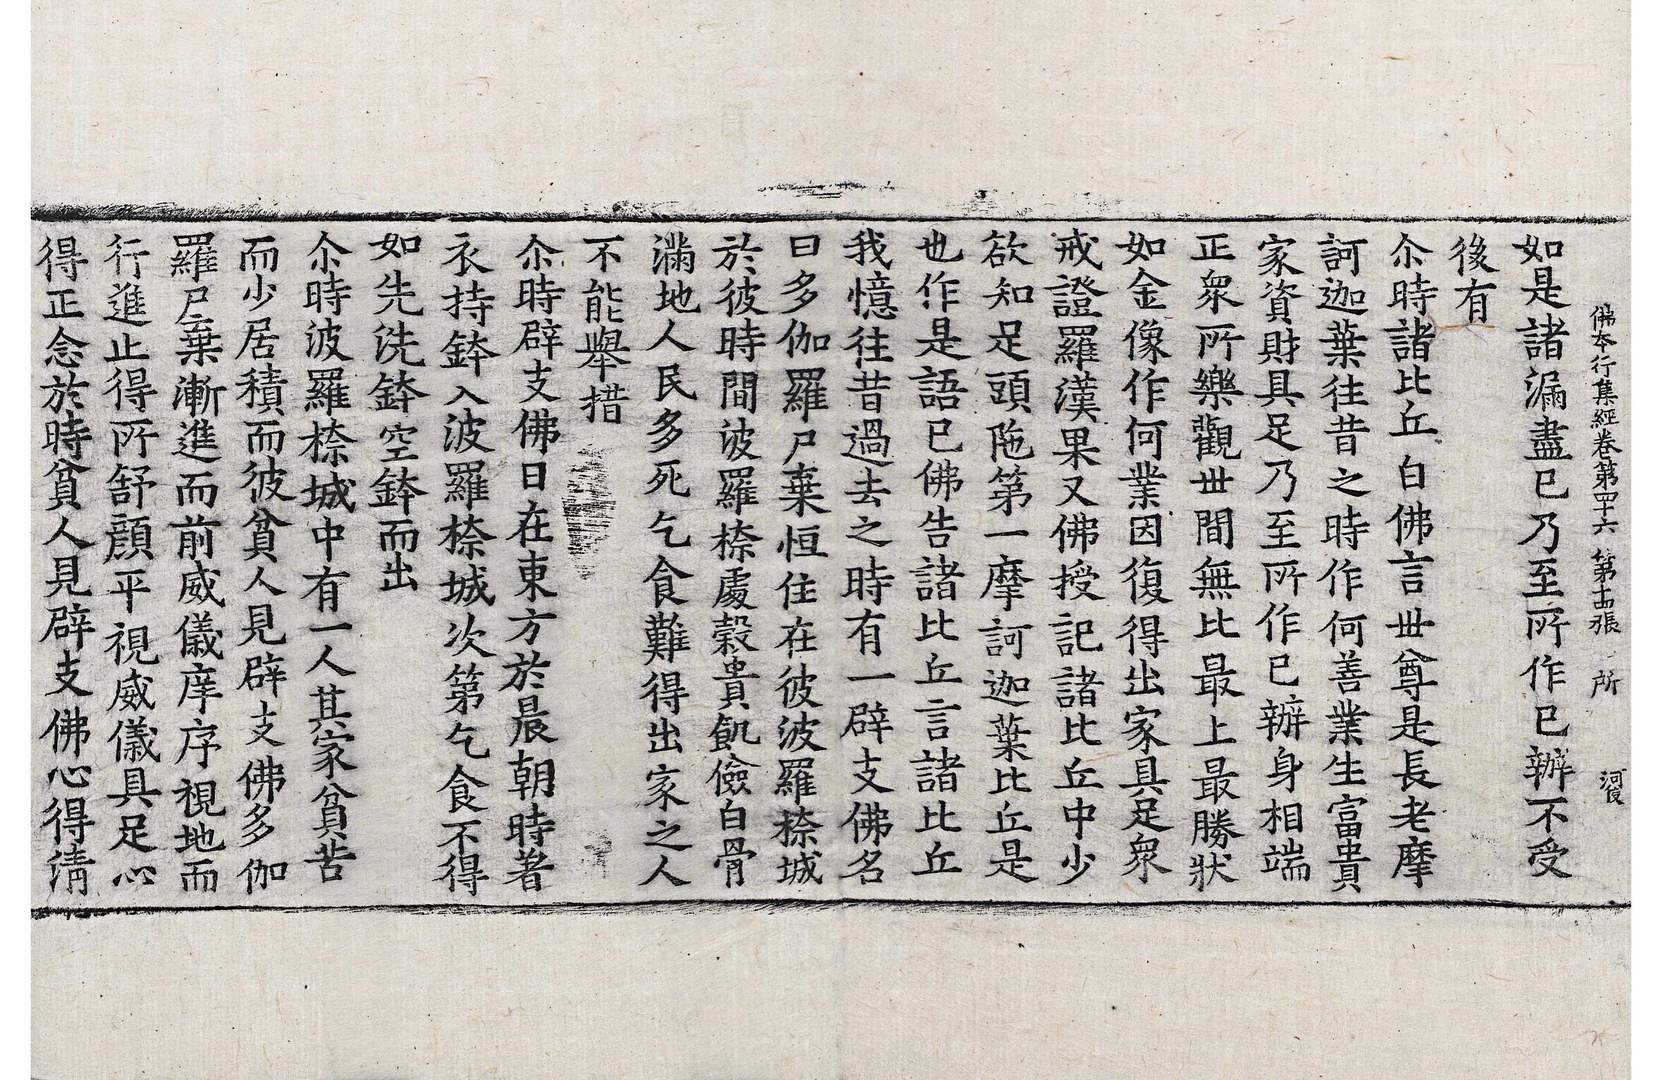 佛本行集經卷第四十六 第十四張 所
如是諸漏盡已乃至所作已辦不受
後有
尒時諸比丘白佛言世尊是長老摩
訶迦葉往昔之時作何善業生富貴
家資財具足乃至所作已辦身相端
正衆所樂觀世間無比最上最勝狀
如金像作何業因復得出家具足衆
戒證羅漢果又佛授記諸比丘中少
欲知足頭陁第一摩訶迦葉比丘是
也作是語已佛告諸比丘言諸比丘
我憶往昔過去之時有一辟支佛名
曰多伽羅尸棄恒住在彼波羅㮈城
於彼時間波羅㮈處穀貴飢儉白骨
滿地人民多死乞食難得出家之人
不能舉措
尒時辟支佛日在東方於晨朝時著
衣持鉢入波羅㮈城次第乞食不得
如先洗鉢空鉢而出
尒時波羅㮈城中有一人其家貧苦
而少居積而彼貧人見辟支佛多伽
羅尸棄漸進而前威儀庠序視地而
行進止得所舒顔平視威儀具足心
得正念於時貧人見辟支佛心得清